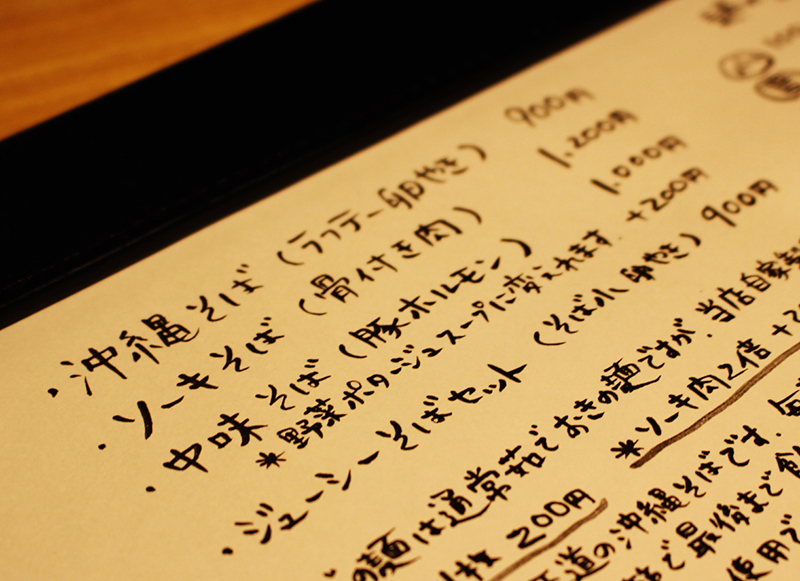 ・沖縄そば（ラフテー卵やき） 900円
・ソーキそば（骨付き肉） 1,200円
・中味そば（豚ホルモン） 1,000円
＊野菜ポタージュスープに変えれます +200円
・ジューシーそばセット（そば小、卵やき） 900円
の麺は通常茹でおきの麺ですが、当店自家製
200円
＊ソーキ肉2倍
道の沖縄そばです。
で最後まで
使用で